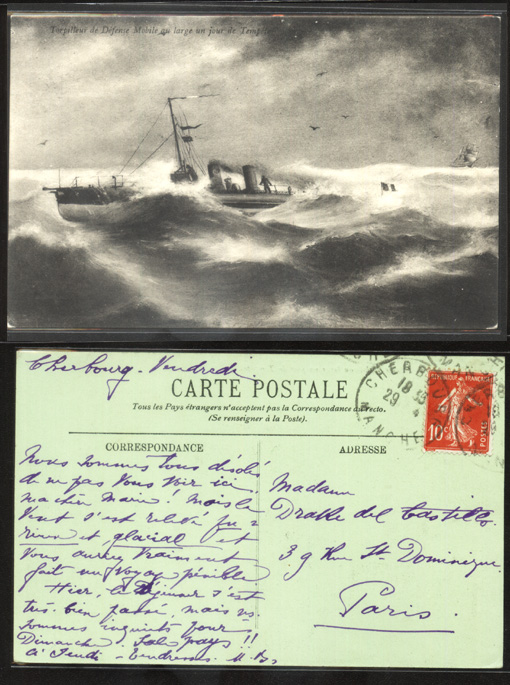 Torpilleur de Défense Mobile au large un jour de Temp
Cherbourg - Vendredi
CARTE POSTALE
Tous les Pays étrangers n'acceptent pas la Correspondance au recto.
(Se renseigner à la Poste).
CORRESPONDANCE
Nous sommes tous désolés
de ne pas vous voir ici,
ma chère Marie! mais le
Vent s'est relevé fu=
rieux et glacial et
vous auriez vraiment
fait un voyage pénible
Hier, le Déjeuner s'est
très bien passé, mais ns
sommes inquiets pour
Dimanche. Sale pays!!
à Jeudi - Tendresses
ADRESSE
Madame
Drake del Castillo
39 Rue St Dominique
Paris.
REPUBLIQUE FRANÇAISE
10
POSTES
CHERB
18
29
4
MANCHE